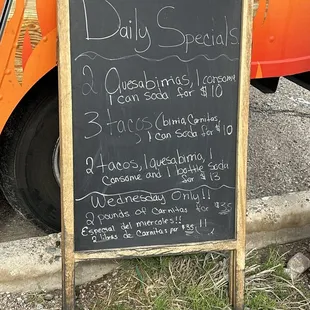 Daily Specials
2 Quesabirrias, 1 consome
1 can soda for $10
3 tacos (birria, Carnitas,
1 can soda for $10
2 tacos, 1 quesabirria, 1
consome and 1 bottle soda
for $13
Wednesday Only!!
2 pounds of Carnitas for $35
Especial del miercoles!!
2 libras de Carnitas por $35!!